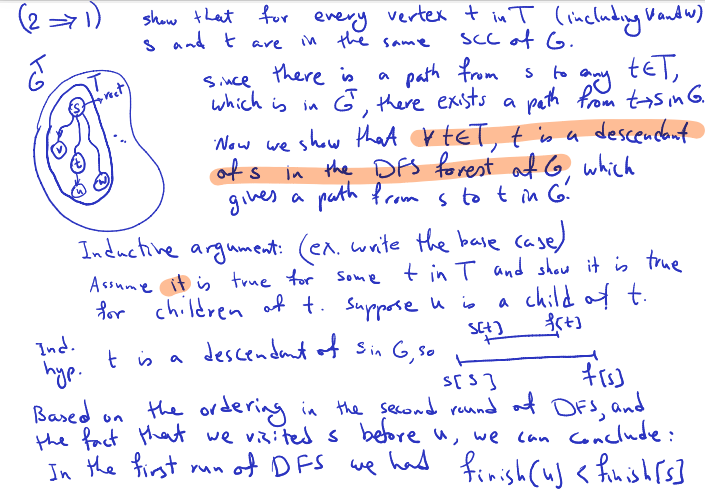 (2 ⇒ 1) show that for every vertex t in T (including v and w)
s and t are in the same SCC of G.
G^T
T
s
root
v
t
u
w
...
since there is a path from s to any t∈T,
which is in G^T, there exists a path from t→s in G.
Now we show that ∀ t∈T, t is a descendant
of s in the DFS forest of G, which
gives a path from s to t in G.
Inductive argument: (ex. write the base case)
Assume it is true for some t in T and show it is true
for children of t. Suppose u is a child of t.
Ind. hyp. t is a descendant of s in G, so
s[t] f[t]
s[s] f[s]
Based on the ordering in the second round of DFS, and
the fact that we visited s before u, we can conclude:
In the first run of DFS we had finish(u) < finish[s]